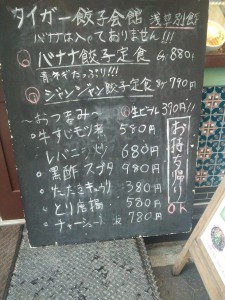 タイガー餃子会館 浅草別館
バナナは入っておりません!!
バナナ餃子定食 6ヶ 880円
青ネギたっぷり!!!
ジャンジャン餃子定食 8ヶ 790円
~おつまみ~ 生ビール 390円!!
牛すじモツ煮 580円
レバニラ炒 680円
黒酢スブタ 980円
たたききゅうり 380円
とり唐揚 580円
チャーシュー 780円
お持ち帰りOK